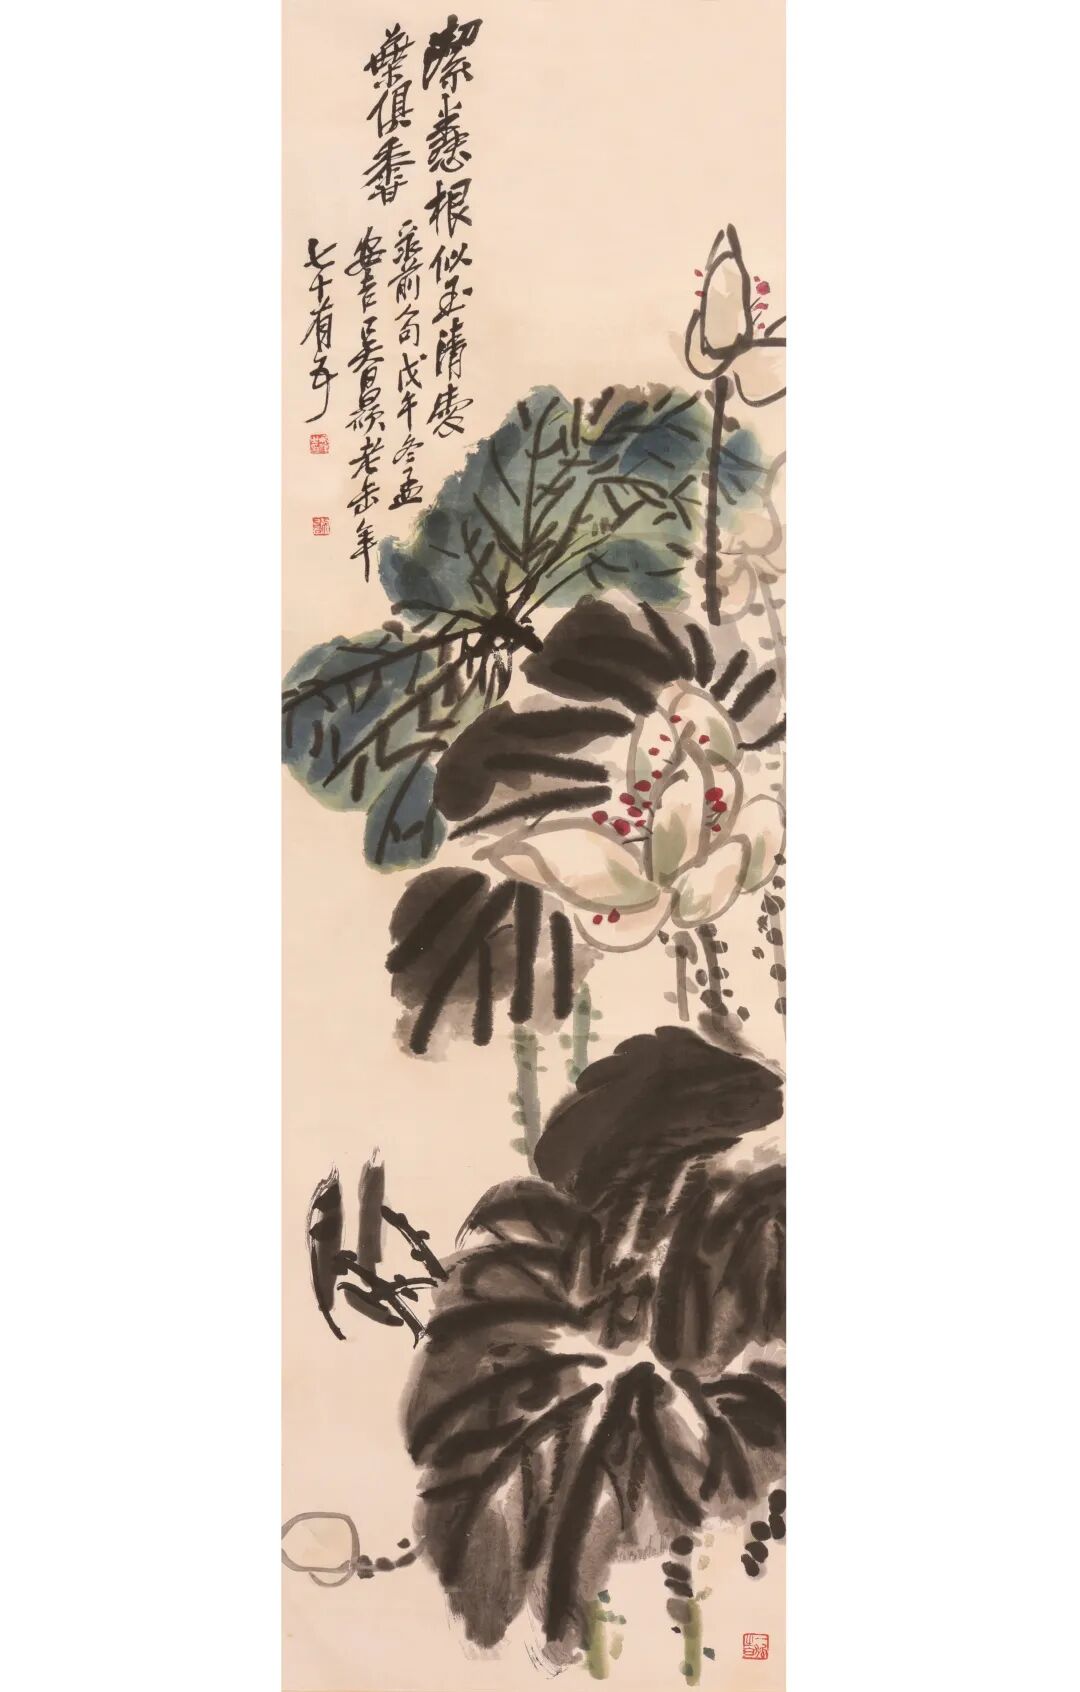 潔根似玉清
葉俱香
前句戊午冬孟
安吉吳昌碩老缶年
七十有五